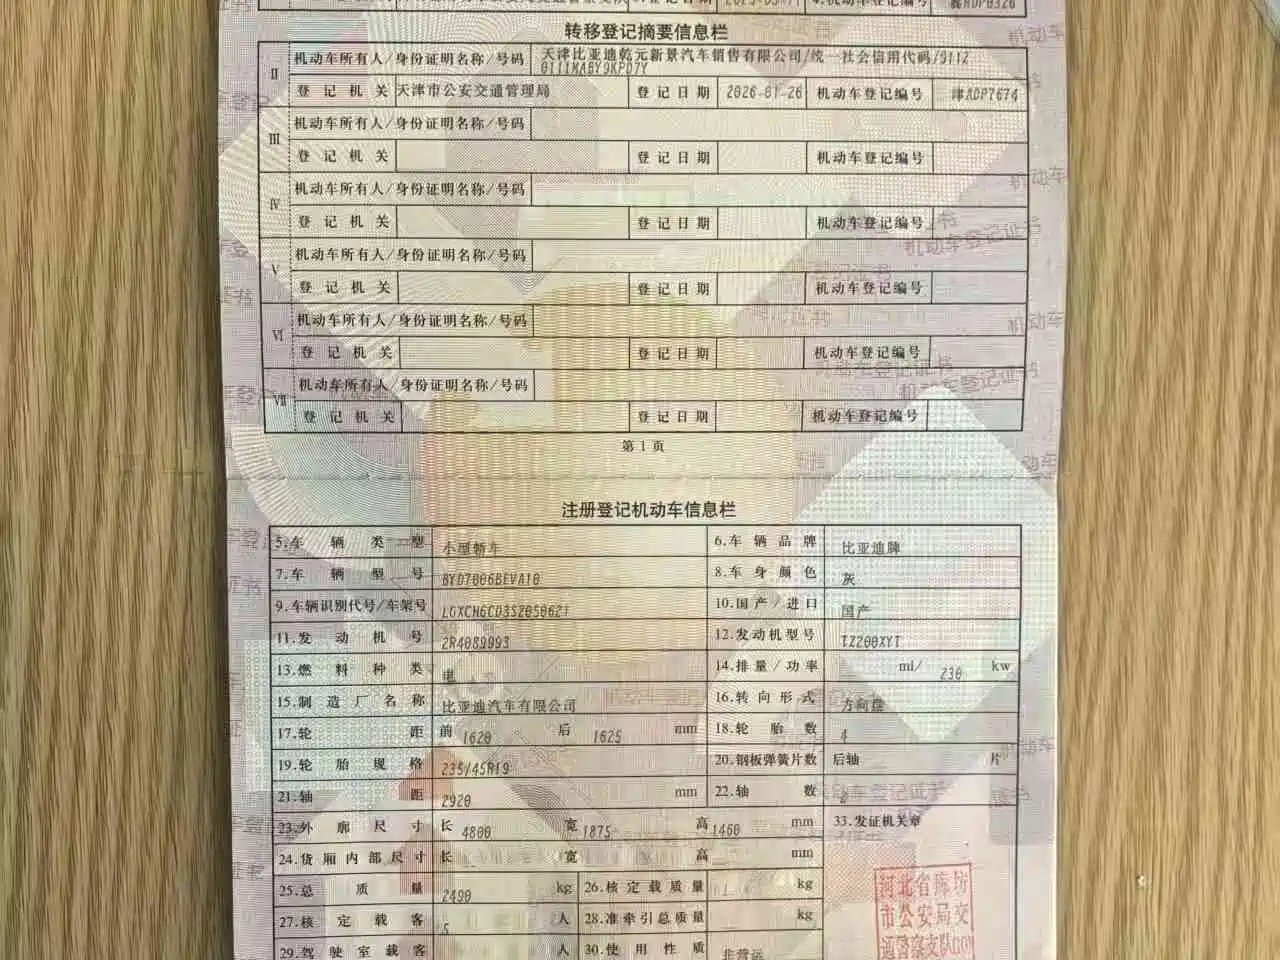 登记日期
4.机动车登记编号
转移登记摘要信息栏
Ⅱ 机动车所有人/身份证明名称/号码 天津比亚迪乾元新景汽车销售有限公司/统一社会信用代码/9112
0111MABY9KPD7Y
登记机关 天津市公安交通管理局 登记日期 2026-01-26 机动车登记编号 津ADP7674
Ⅲ 机动车所有人/身份证明名称/号码
登记机关 登记日期 机动车登记编号
Ⅳ 机动车所有人/身份证明名称/号码
登记机关 登记日期 机动车登记编号
Ⅴ 机动车所有人/身份证明名称/号码
登记机关 登记日期 机动车登记编号
Ⅵ 机动车所有人/身份证明名称/号码
登记机关 登记日期 机动车登记编号
Ⅶ 机动车所有人/身份证明名称/号码
登记机关 登记日期 机动车登记编号
第1页
注册登记机动车信息栏
5.车辆类型 小型轿车 6.车辆品牌 比亚迪牌
7.车辆型号 BYD7006BEVA10 8.车身颜色 灰
9.车辆识别代号/车架号 LGXCH6CD3S2050621 10.国产/进口 国产
11.发动机号 2R4089993 12.发动机型号 TZ200XYT
13.燃料种类 电 14.排量/功率 ml/ 230 kw
15.制造厂名称 比亚迪汽车有限公司 16.转向形式 方向盘
17.轮距 前 1620 后 1625 mm 18.轮胎数 4
19.轮胎规格 235/45R19 20.钢板弹簧片数 后轴 片
21.轴距 2920 mm 22.轴数
23.外廓尺寸 长 4800 宽 1875 高 1460 mm 33.发证机关章
24.货厢内部尺寸 长 宽 高 mm
25.总质量 2490 kg 26.核定载质量 kg
27.核定载客 5 人 28.准牵引总质量 kg
29.驾驶室载客 人 30.使用性质 非营运
河北省廊坊
市公安局交
通警察支队